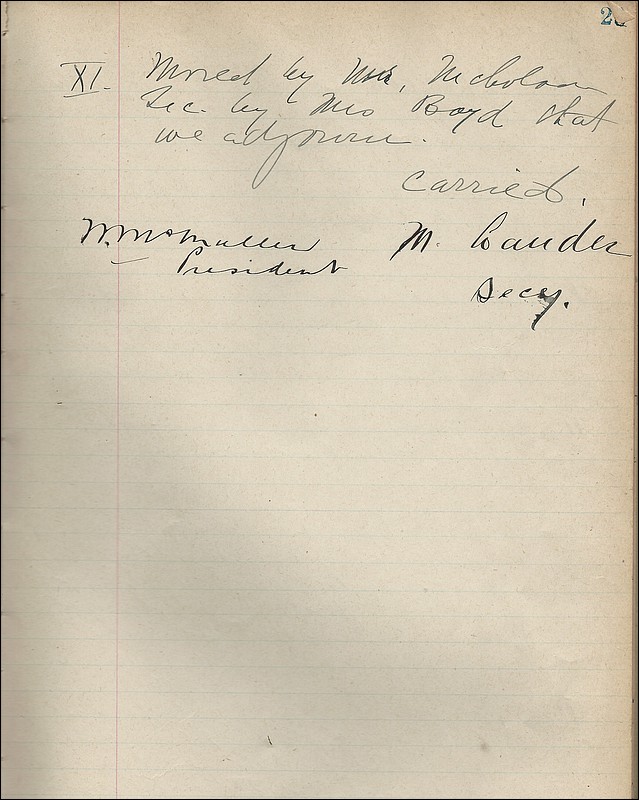 XI. Moved by Mrs, Nicholson
Sec. by Mrs Boyd that
we adjourn.
Carried.
W. McMullen
President
M. Lauder
Secy.